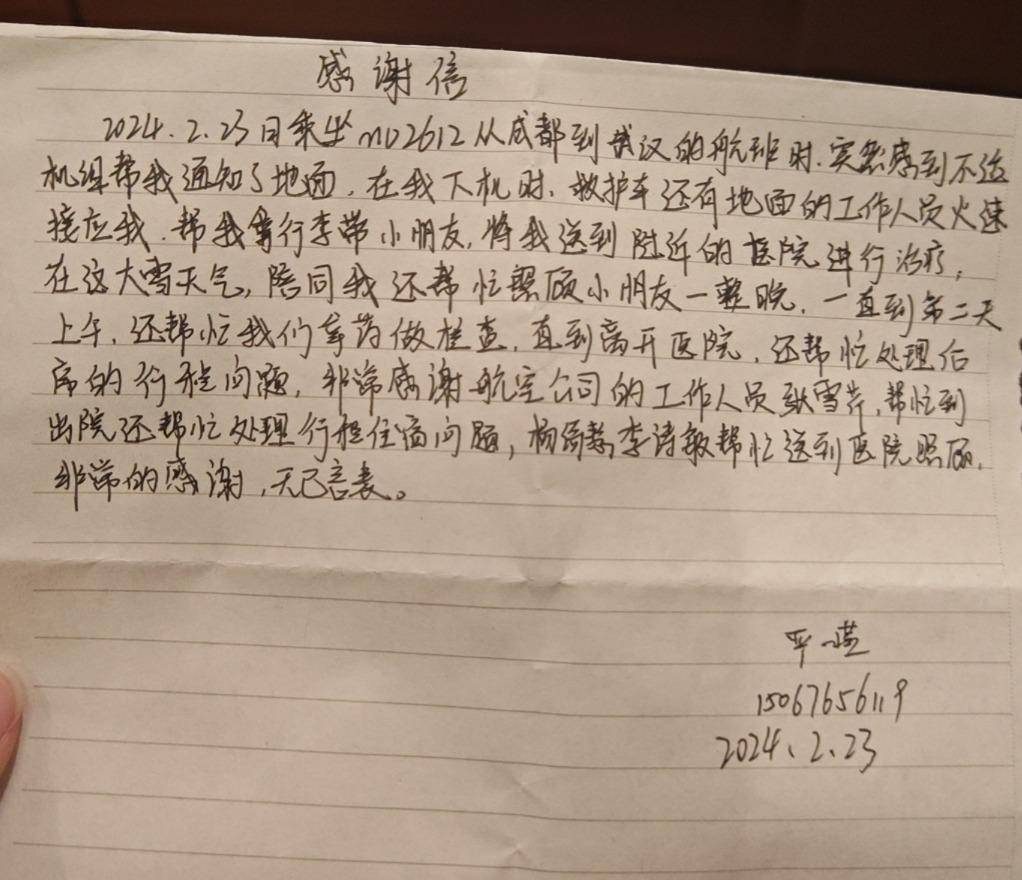 感谢信
2024.2.23日乘坐MU2612从成都到武汉的航班时.突然感到不适
机组帮我通知了地面.在我下机时.救护车还有地面的工作人员火速
接应我.帮我拿行李带小朋友,将我送到附近的医院进行治疗,
在这大雪天气,陪同我还帮忙照顾小朋友一整晚.一直到第二天
上午,还帮忙我们拿药做检查,直到离开医院,还帮忙处理后
序的行程问题,非常感谢航空公司的工作人员耿雪芹,帮忙到
出院还帮忙处理行程住宿问题,杨 李诗敏帮忙送到医院照顾,
非常的感谢,无已言表。
15067656119
2024、2.23